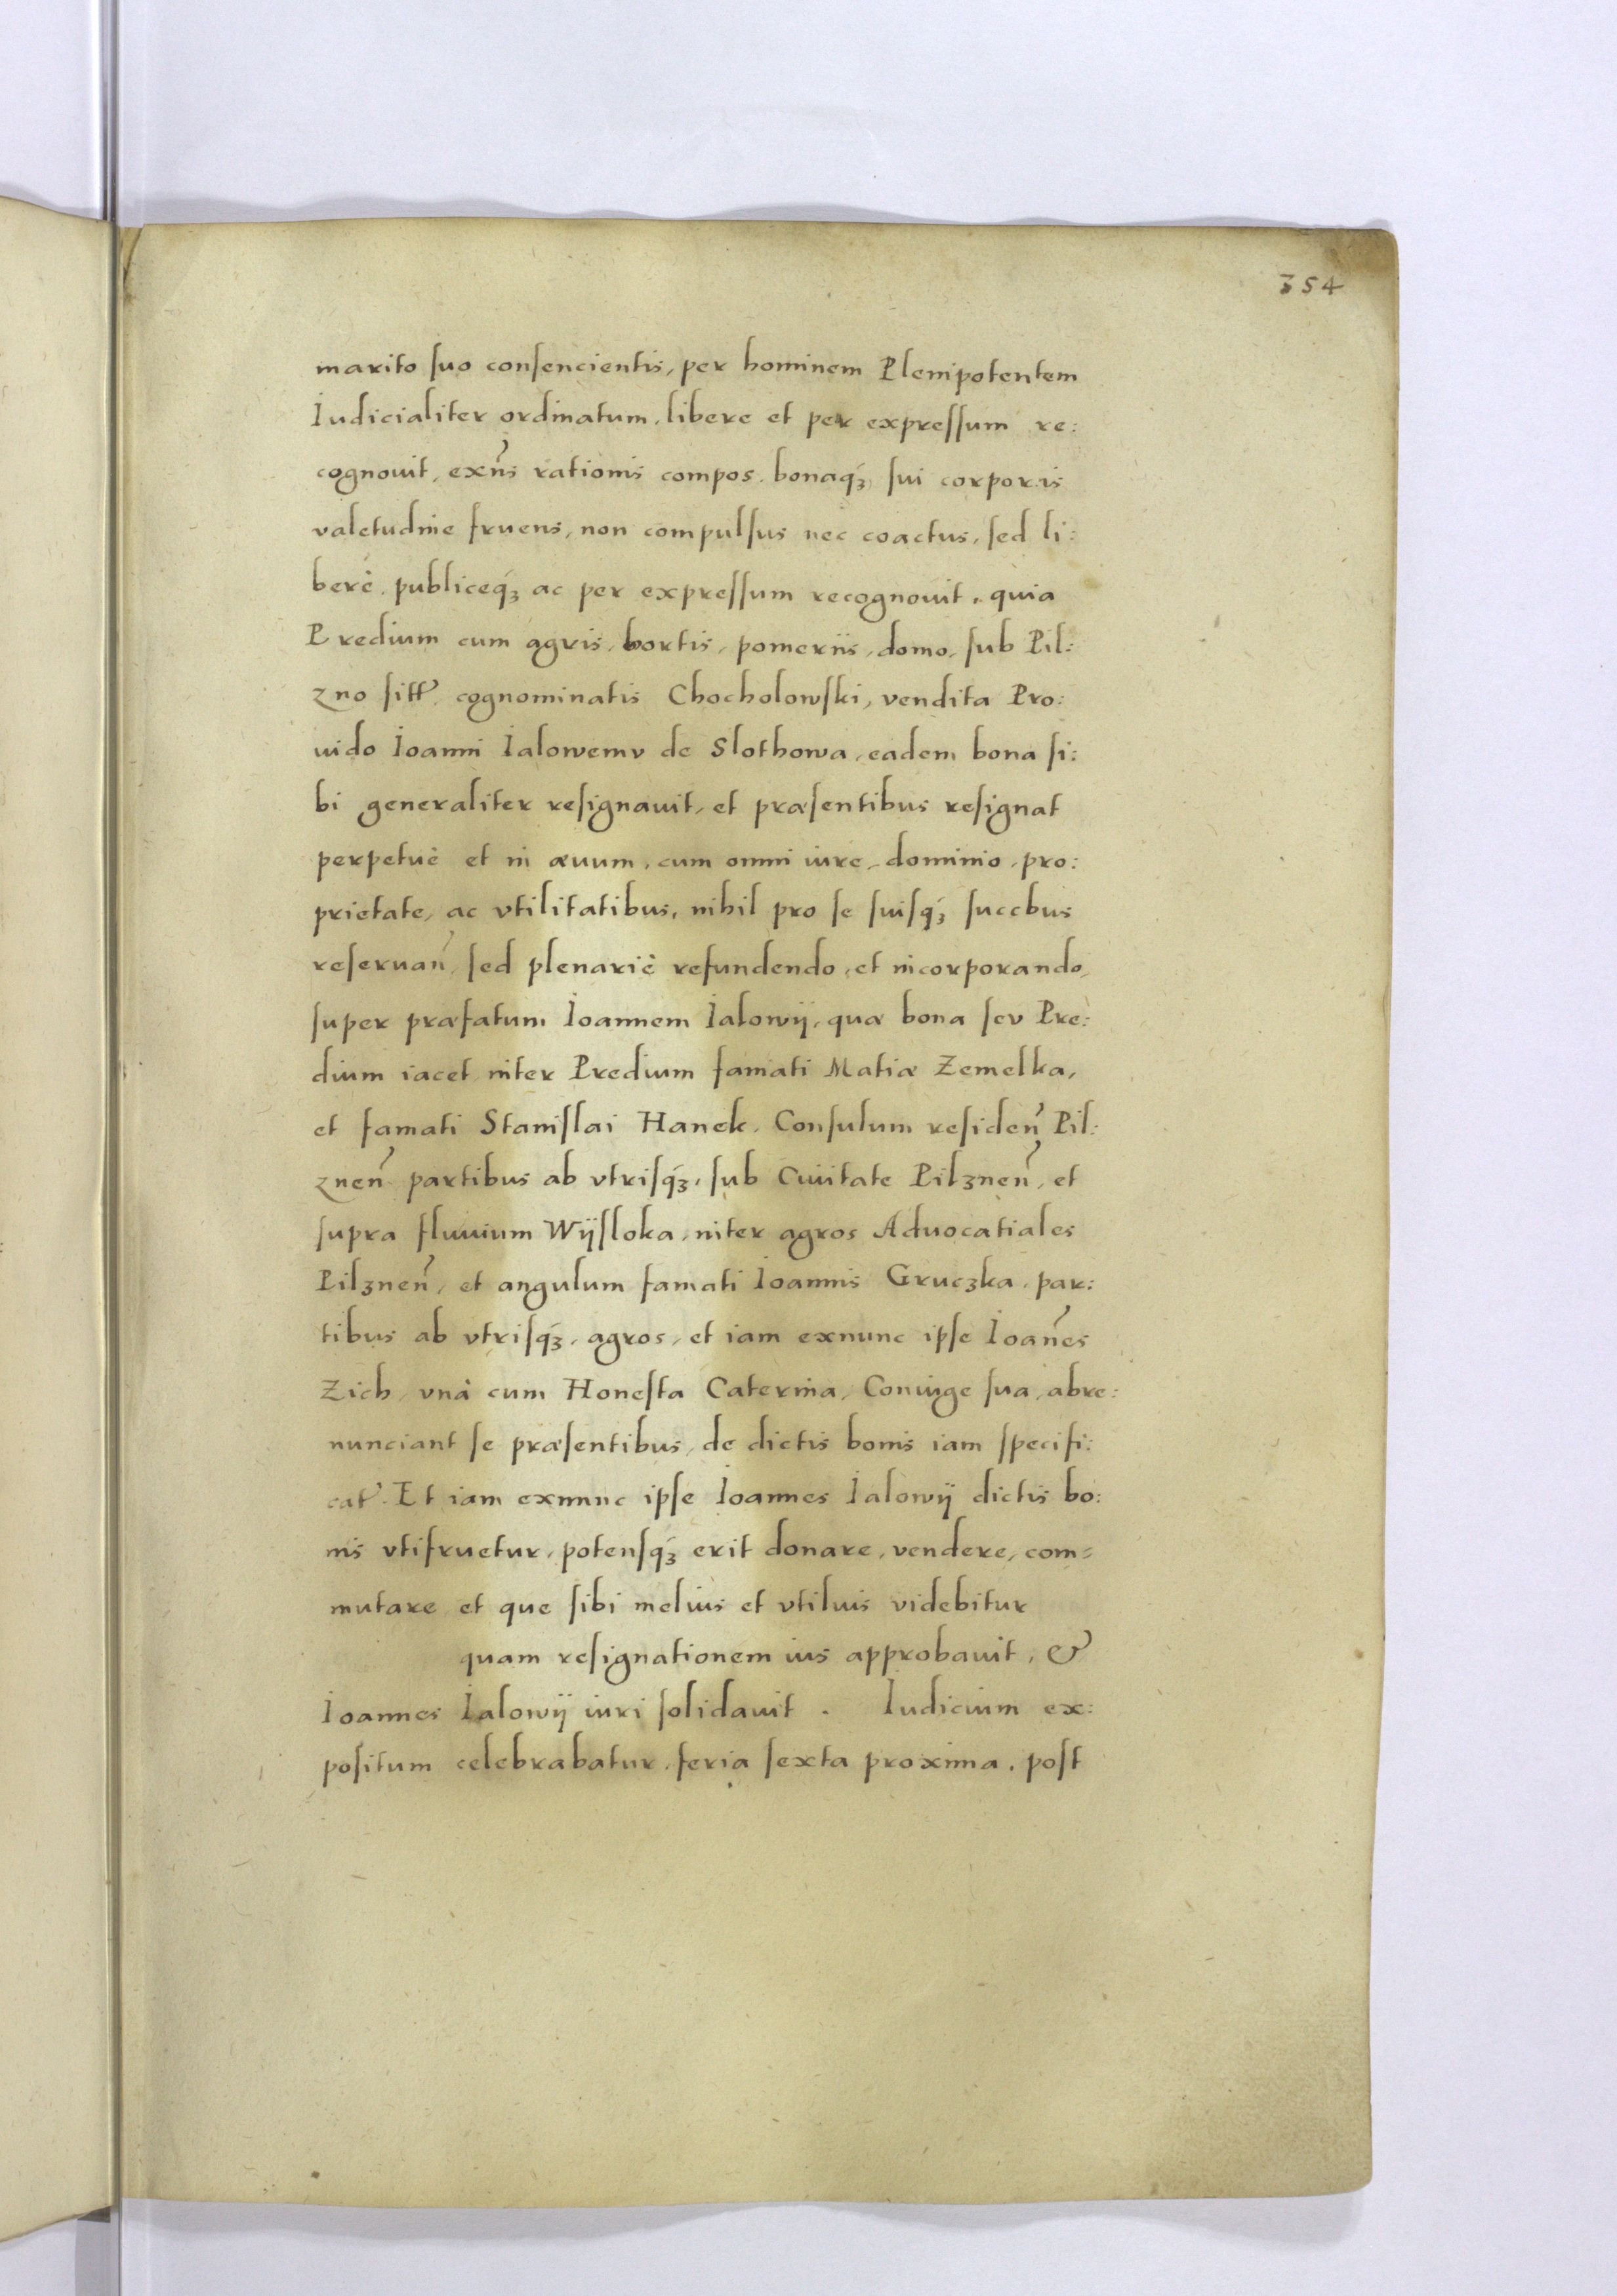 354
marito ſuo conſencientis, per hominem Plenipotentem
Iudicialiter ordinatum, libere et per expreſſum re:
cognouit, exñs rationis compos, bonaq́ꝫ ſui corporis
valetudine fruens, non compulſus nec coactus, ſed li:
berè, publiceq́ꝫ ac per expreſſum recognouit, quia
Predium cum agris, hortis, pomeriis, domo, ſub Pil:
zno ſitt̃, cognominatis Chocholowſki, vendita Pro:
uido Ioanni Ialowemv de Slothowa, eadem bona ſi:
bi generaliter reſignauit, et præſentibus reſignat
perpetuè et in æuum, cum omni iure, dominio, pro:
prietate, ac vtilitatibus, nihil pro ſe ſuiſq́ꝫ ſuccbus
reſeruañ, ſed plenariè refundendo, et incorporando,
ſuper præfatum Ioannem Ialowij, quæ bona ſev Pre:
dium iacet inter Predium famati Matiæ Zemelka,
et famati Staniſlai Hanek, Conſulum reſideñ Pil:
zneñ partibus ab vtriſq́ꝫ, ſub Ciuitate Pilzneñ, et
ſupra fluuium Wijſloka, inter agros Aduocatiales
Pilzneñ, et angulum famati Ioannis Gruczka, par:
tibus ab vtriſq́ꝫ, agros, et iam exnunc ipſe Ioañes
Zich, vnà cum Honeſta Caterina, Coniuge ſua, abre:
nunciant ſe præſentibus, de dictis bonis iam ſpecifi:
cat̃. Et iam exnunc ipſe Ioannes Ialowij dictis bo:
nis vtifruetur, potenſq́ꝫ erit donare, vendere, com=
mutare et que ſibi melius et vtilius videbitur
quam reſignationem ius approbauit, &
Ioannes Ialowij iuri ſolidauit. Iudicium ex:
poſitum celebrabatur, feria ſexta proxima, poſt